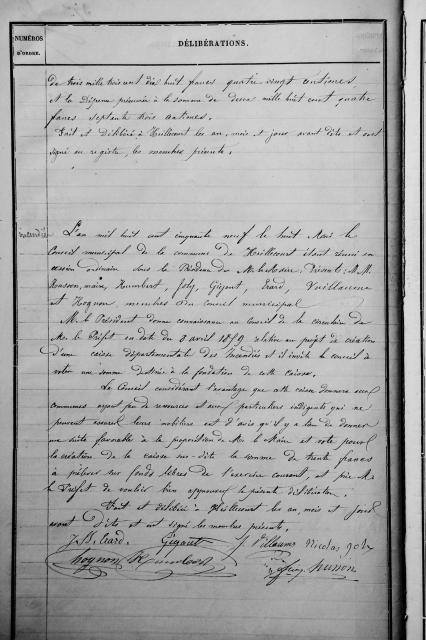 NUMÉROS
D'ORDRE.
DÉLIBÉRATIONS.
De trois mille trois cent dix huit francs quatre vingt centimes
et la Dépense présumée à la somme de deux mille huit cent quatre
francs septante trois centimes.
Fait et délibéré à Heillecourt les an, mois et jours avant dits et ont
signé au registre, les membres présents.
Incendie
L'an mil huit cent cinquante neuf le huit Mai le
Conseil municipal de la commune de Heillecourt étant réuni en
session ordinaire sous la Présidence de Mr le Maire, Présents : M.M.
maire, Humbert, Joly, Gigant, Erard, Vuillaume
et Hognon membres du conseil municipal
Mr le Président donne connaissance au Conseil de la circulaire de
Mr le Préfet en date du 8 avril 1859 relative au projet de création
d'une caisse départementale des Incendiés et il invite le conseil à
voter une somme destinée à la fondation de cette caisse.
Le Conseil considérant l'avantage que cette caisse donnera aux
communes ayant peu de ressources et aux particuliers indigents qui ne
peuvent assurer leurs mobiliers est d'avis qu'il y a lieu de donner
une suite favorable à la proposition de Mr le Maire et vote pour
la création de la caisse sus-dite la somme de trente francs
à prélever sur fonds libres de l'exercice courant, et prie Mr
le Préfet de vouloir bien approuver la présente délibération.
Fait et délibéré à Heillecourt les an, mois et jours
avant dits et ont signé les membres présents.
J. B. Erard. Gigant J. Villaume Nicolas Joly
hognon Humbert